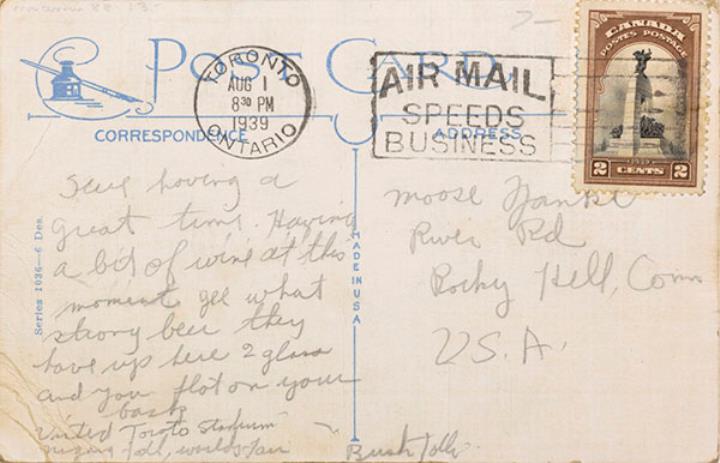 POST CARD
TORONTO
AUG 1
8 30 PM
1939
ONTARIO
AIR MAIL
SPEEDS
BUSINESS
CANADA
POSTES POSTAGE
2 1939 2
CENTS
CORRESPONDENCE
ADDRESS
Series 1036—6 Des.
MADE IN USA
having a
great time. Having
a bit of wine at this
moment gee what
strong beer they
have up here 2 glass
and you flot on your
back
United Toroto Stadium
fall, worlds fair
Moose
River Rd
Rocky Hill, Conn
U.S.A.